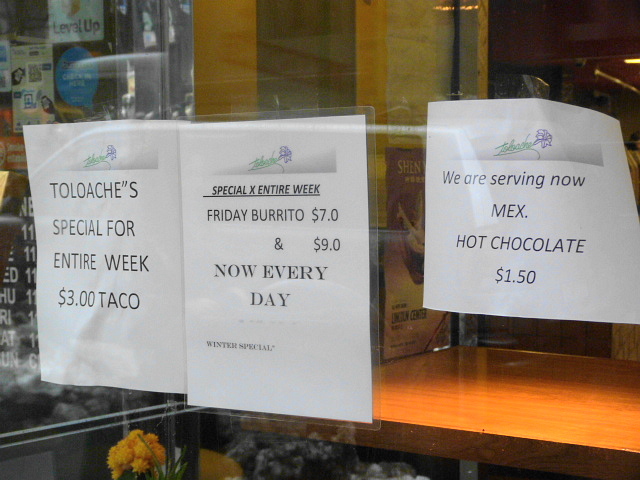 Level Up
toloache
TOLOACHE"S
SPECIAL FOR
ENTIRE WEEK
$3.00 TACO
toloache
SPECIAL X ENTIRE WEEK
FRIDAY BURRITO $7.0
& $9.0
NOW EVERY
DAY
WINTER SPECIAL*
toloache
We are serving now
MEX.
HOT CHOCOLATE
$1.50
LINCOLN CENTER